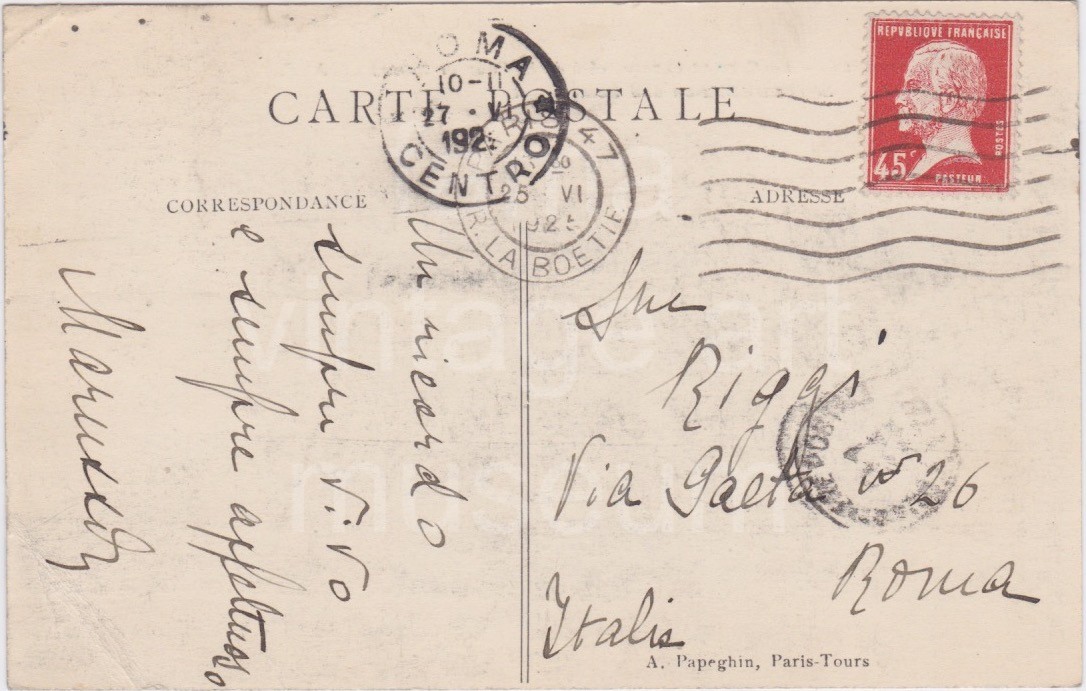 CARTE POSTALE
CORRESPONDANCE
ADRESSE
REPVBLIQVE FRANÇAISE
45c
POSTES
PASTEUR
ROMA
10-11
27 · VI
192
CENTRO
PARIS 47
25 VI
192
R. LA BOETIE
Un ricordo
sempre vivo
e sempre affettuoso
Riggi
Via Gaeta n 26
Roma
Italia
A. Papeghin, Paris-Tours
vintage art
museum